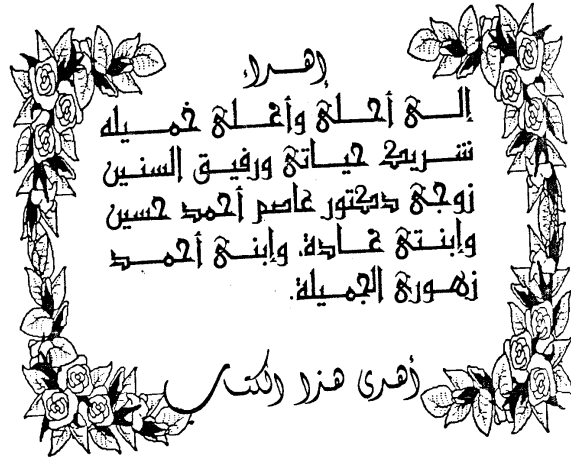 إهداء
إلى أحلى وأغلى خميله
شريك حياتى ورفيق السنين
زوجى دكتور عاصم أحمد حسين
وإبنتى غادة. وإبنى أحمد
زهورى الجميلة.
أهدى هذا الكتاب